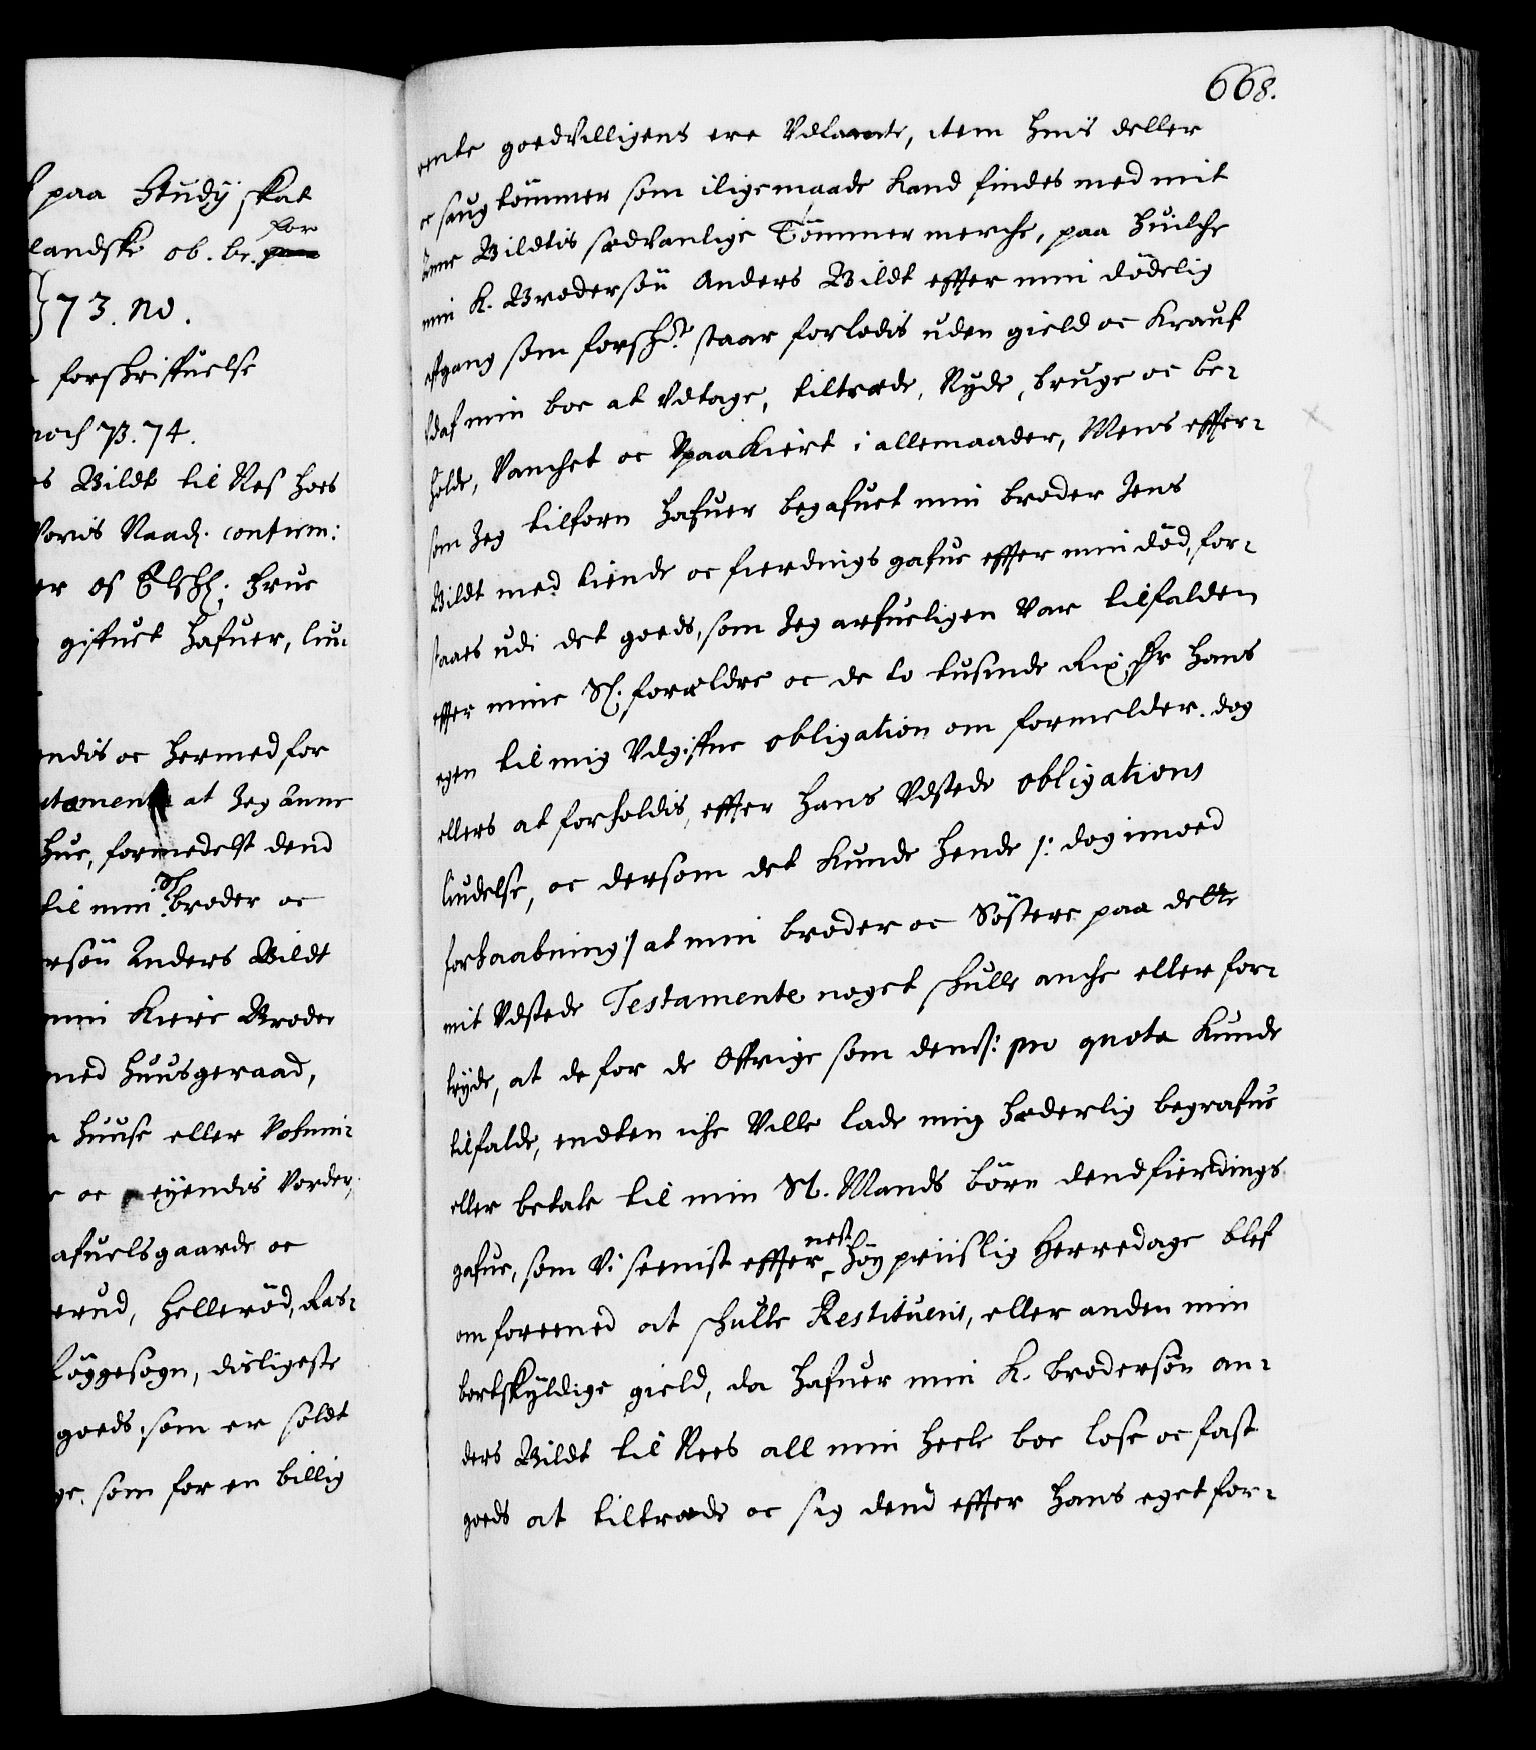 paa Studij skat
landske ob. be. for
73. No.
forskriffuelse
noch 73. 74.
s Bildt til Nes hoes
Voris Naad. confirm:
er os Elskl: Frue
giffuet hafuer, liu-
endis oc hermed for
stamente at Jeg Anne
hue, formedelst dend
til min Sl. broder oc
rsøn Anders Bildt
min kiere Broder
med huusgeraad,
huuse eller Vohni-
oc eyendis Vorder,
afuelsgaarde oc
erud, Hellerød, Ras-
løggesogn, disligeste
goeds som er soldt
ge, som for en billig
668.
rente goedvilligens ere Vdlaante, item huis deller
oc saugtømmer som iligemaade kand findes med mit
Anne Bildtis sædvanlige Tømmermerche, paa huilche
min K. Brodersøn Anders Bildt effter min dødelig
affgang som forschr. staar forlodis uden gield oc krauf
udaf min boe at Vdtage, tiltræde, Nyde, bruge oc be-
holde, Vanchet oc Vpaakiert i allemaader, Mens effter-
som Jeg tilforn hafuer begafuet min broder Jens
Bildt med tiende oc fierdings gafue effter min død, for-
staaes udi det goeds, som Jeg arfueligen Var tilfalden
effter mine Sl. forældre oc de to tusinde Rix dr hans
egen til mig Vdgiffne obligation om formelder. dog
ellers at forholdis, effter hans Vdstede obligations
liudelse, oc dersom det kunde hende /: dog imoed
forhaabning :/ at min broder oc Søstere paa dette
mit Vdstede Testamente noget schulle anche eller for-
tryde, at de for de Øffrige som dennem pro quota kunde
tilfalde, endten iche Ville lade mig hæderlig begrafue
eller betale til min Sl. Mands børn dend fierdings
gafue, som Vi seenist effter nest høypriislig herredage blef
om foreened at schulle Restitueris, eller anden min
bortskyldige gield, da hafuer min K. brodersøn An-
ders Bildt til Nees all min heele boe løse oc fast
goeds at tiltræde oc sig dend effter hans eget for-